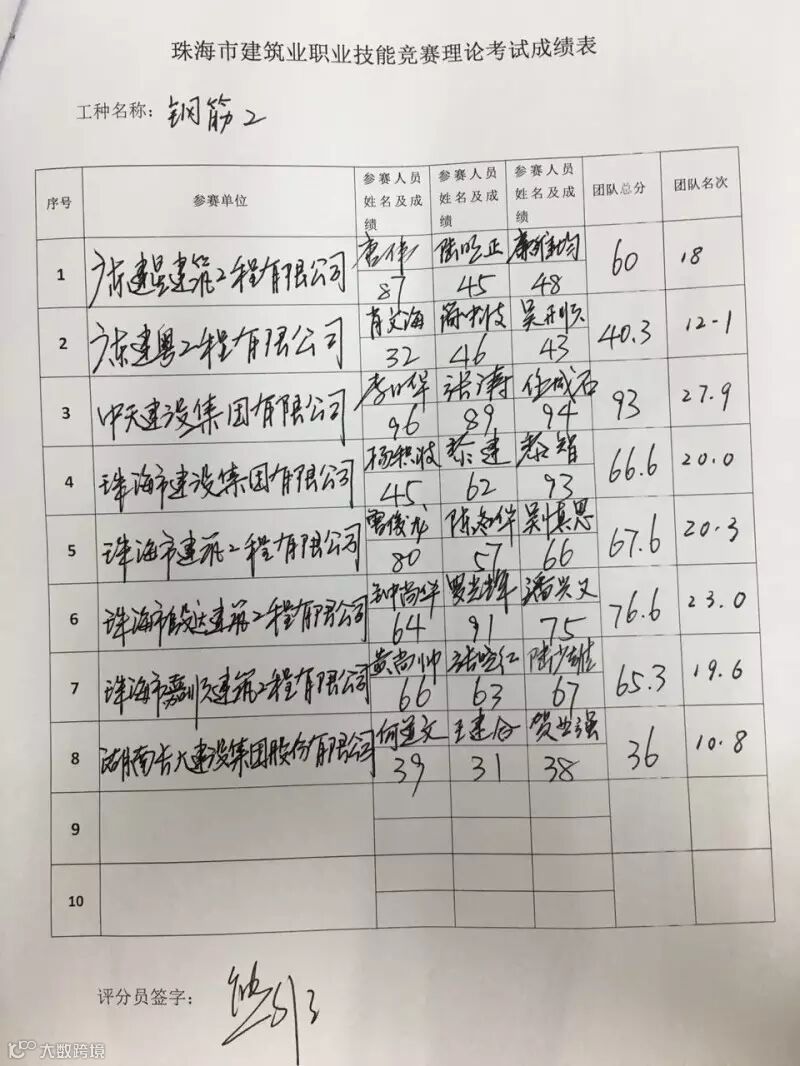 珠海市建筑业职业技能竞赛理论考试成绩表
工种名称: 钢筋2
序号 参赛单位 参赛人员姓名及成绩 参赛人员姓名及成绩 参赛人员姓名及成绩 团队总分 团队名次
1 广东建星建筑工程有限公司 唐伟 60 18
87 45 48
2 广东建粤工程有限公司 肖文海 40.3 12.1
32 46 43
3 中天建设集团有限公司 张涛 任成石 93 27.9
96 89 94
4 珠海市建设集团有限公司 黎建 黎智 66.6 20.0
45 62 93
5 珠海市建筑工程有限公司 67.6 20.3
80 57 66
6 珠海市建筑工程有限公司 潘兴文 76.6 23.0
64 91 75
7 珠海市嘉顺建筑工程有限公司 黄尚帅 65.3 19.6
66 63 67
8 湖南长大建设集团股份有限公司 何道文 贺业强 36 10.8
39 31 38
9
10
评分员签字:
大数跨境